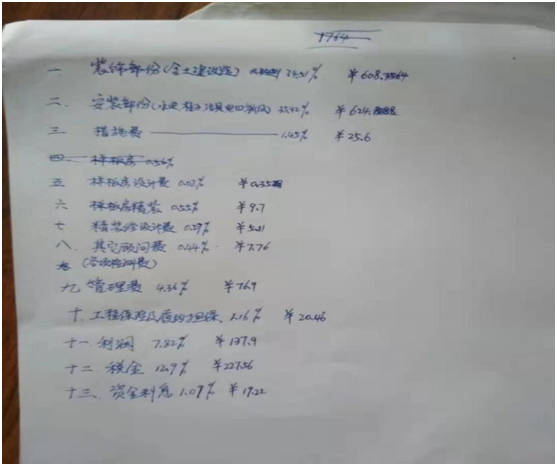 1764
一 装饰部份(含土建改造) 34.51% ￥608.
二、安装部份( 35.42% ￥624.
三 措施费 1.45% ￥25.6
四 样板房 0.56%
五 样板房设计费 0.02% ￥0.35
六 样板房精装 0.55% ￥9.7
七 精装修设计费 0.29% ￥5.11
八、其它顾问费 0.44% ￥7.76
(各项检测费)
九 管理费 4.36% ￥76.9
十、工程保险及履约担保 1.16% ￥20.46
十一 利润 7.82% ￥137.9
十二 税金 12.9% ￥227.56
十三、资金利息 1.09% ￥19.22